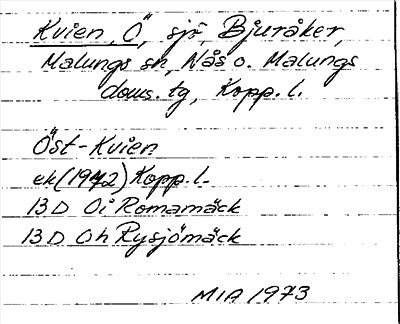 Kvien, Ö, sjö, Bjuråker,
Malungs sn, Nås o. Malungs
doms. tg, Kopp. l.
Öst-Kvien
ek (1972) Kopp. l.
13 D 0i Romamäck
13 D 0h Rysjömäck
MIA 1973